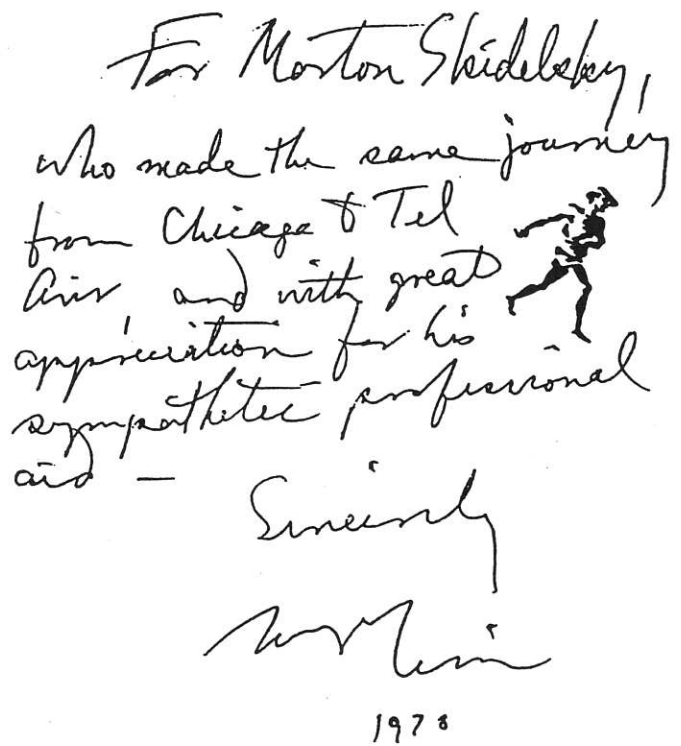 For Morton Skidelsky,
who made the same journey
from Chicago to Tel
Aviv, and with great
appreciation for his
sympathetic professional
aid —
Sincerely
Meyer Levin
1978